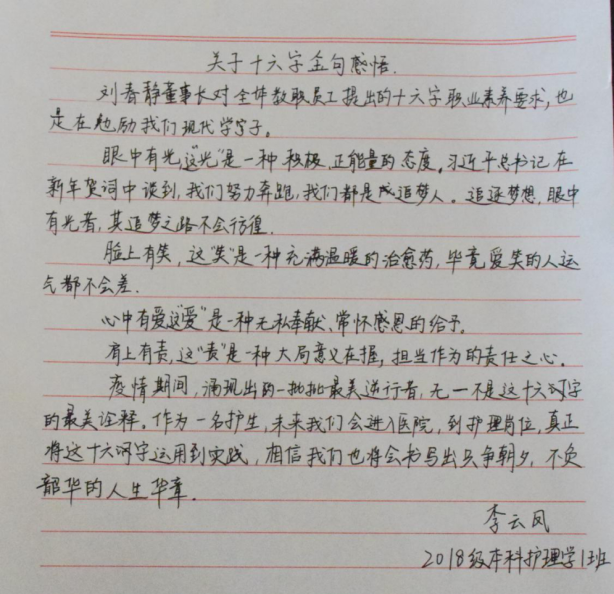 关于十六字金句感悟.
刘春静董事长对全体教职员工提出的十六字职业素养要求,也
是在勉励我们现代学子。
眼中有光,这“光”是一种积极、正能量的态度。习近平总书记在
新年贺词中谈到,我们努力奔跑,我们都是追梦人。追逐梦想,眼中
有光者,其追梦之路不会彷徨.
脸上有笑,这“笑”是一种充满温暖的治愈药,毕竟爱笑的人运
气都不会差.
心中有爱,这“爱”是一种无私奉献、常怀感恩的给予。
肩上有责,这“责”是一种大局意义在握,担当作为的责任之心.
疫情期间,涌现出的一批批最美逆行者,无一不是这十六个字
的最美诠释。作为一名护生,未来我们会进入医院,到护理岗位,真正
将这十六个字运用到实践,相信我们也将会书写出只争朝夕,不负
韶华的人生华章.
李云凤
2018级本科护理学1班